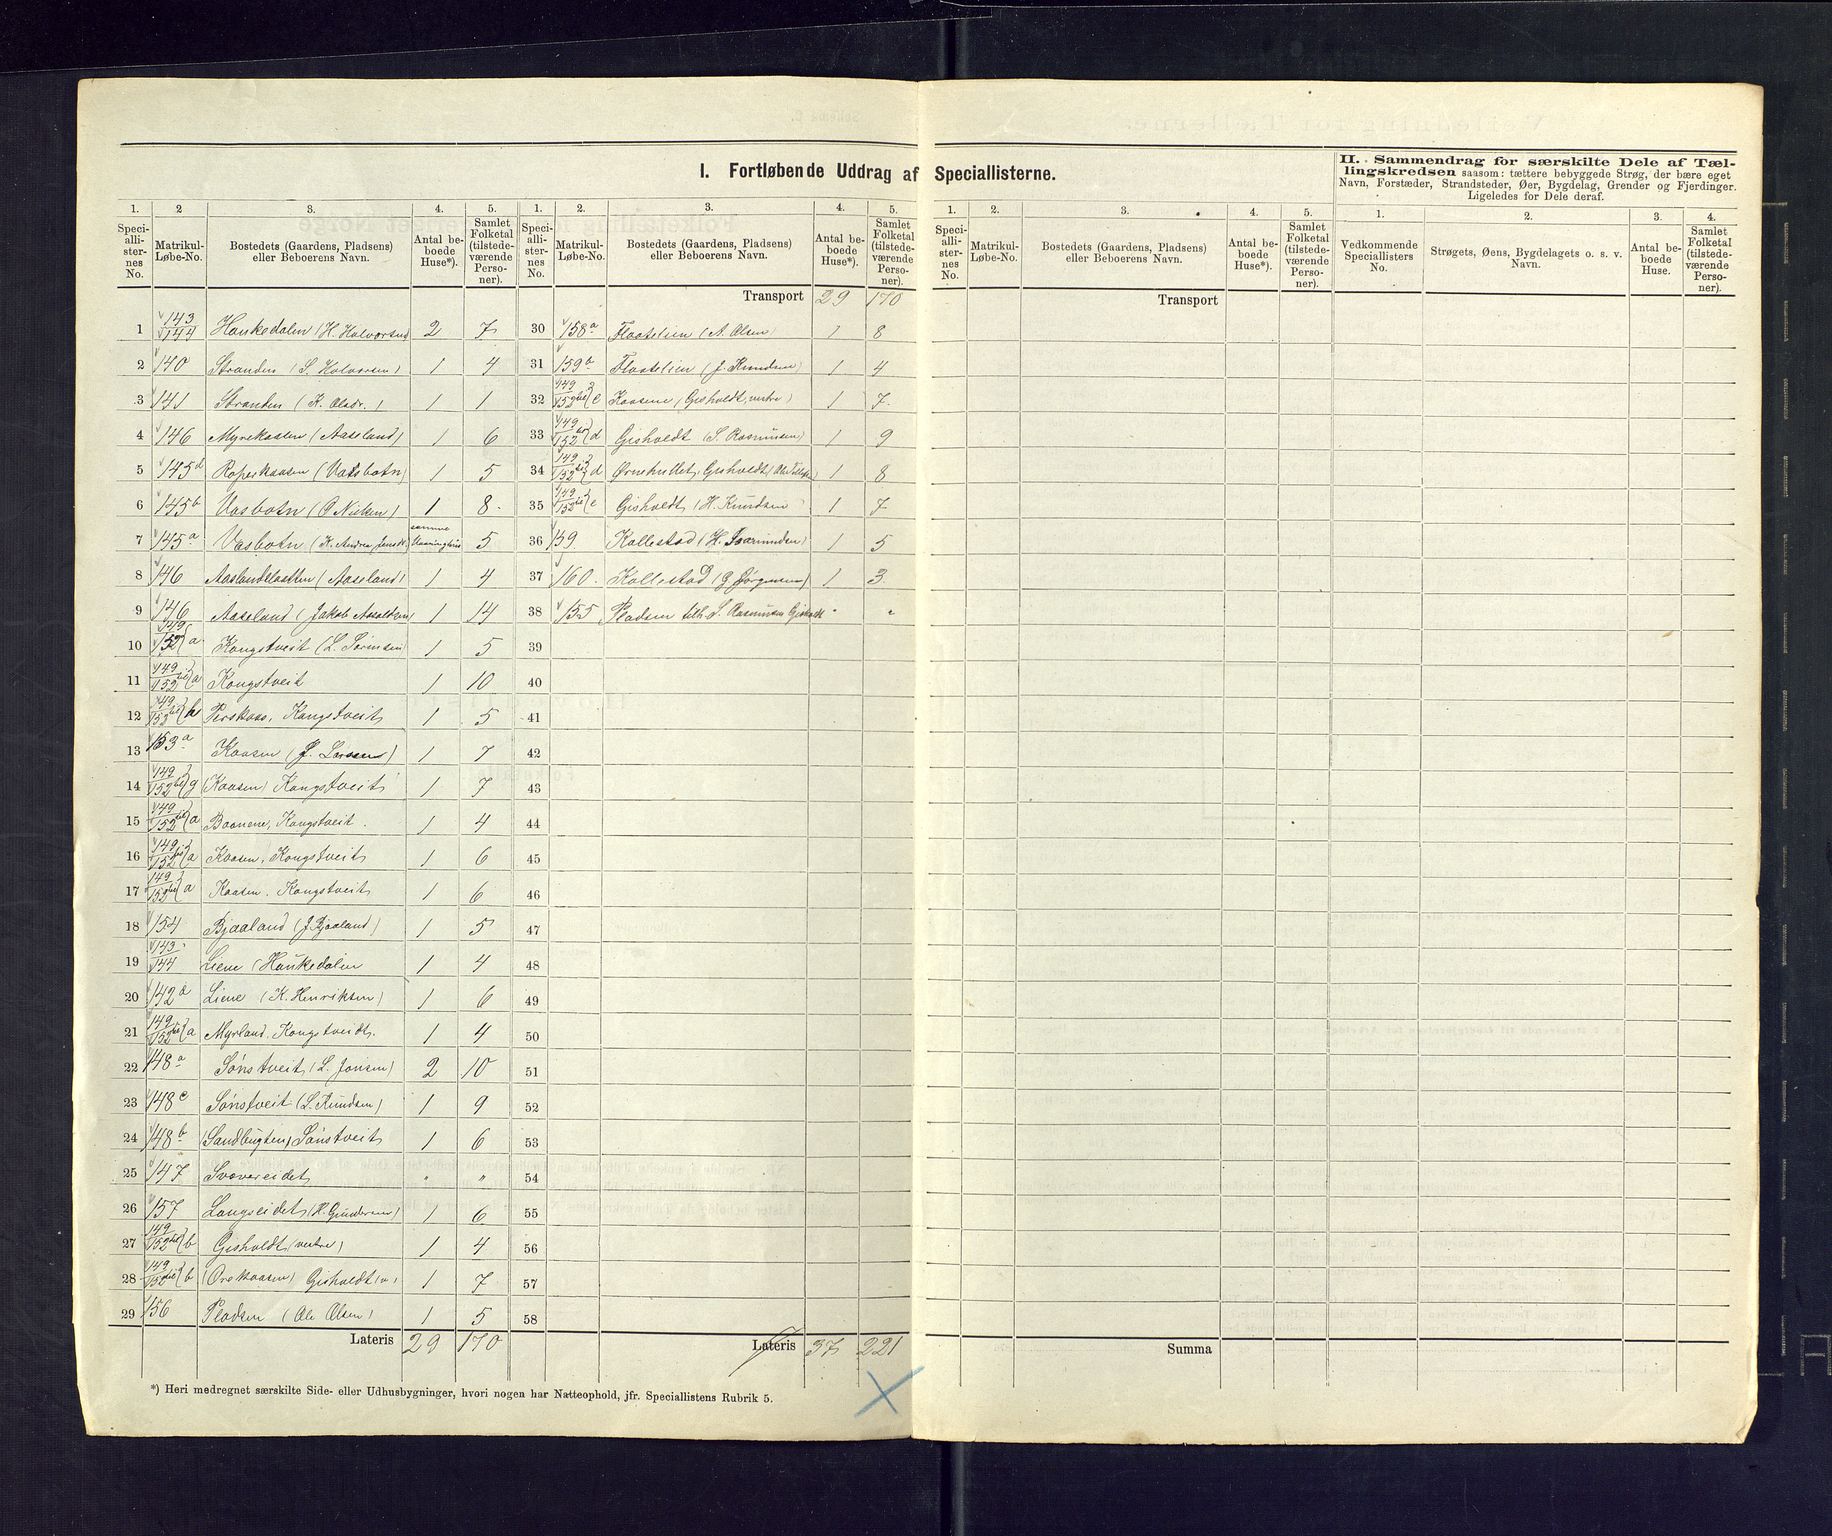 I. Fortløbende Uddrag af Speciallisterne.
II. Sammendrag for særskilte Dele af Tæl-
lingskredsen saasom: tættere bebyggede Strøg, der bære eget
Navn, Forstæder, Strandsteder, Øer, Bygdelag, Grender og Fjerdinger.
Ligeledes for Dele deraf.
1. 2 3. 4. 5. 1. 2. 3. 4. 5. 1. 2. 3. 4. 5. 1. 2. 3. 4.
Speciallisternes No. Matrikul-Løbe-No. Bostedets (Gaardens, Pladsens) eller Beboerens Navn. Antal beboede Huse*). Samlet Folketal (tilstedeværende Personer).
Speciallisternes No. Matrikul-Løbe-No. Bostedets (Gaardens, Pladsens) eller Beboerens Navn. Antal beboede Huse*). Samlet Folketal (tilstedeværende Personer).
Speciallisternes No. Matrikul-Løbe-No. Bostedets (Gaardens, Pladsens) eller Beboerens Navn. Antal beboede Huse*). Samlet Folketal (tilstedeværende Personer).
Vedkommende Speciallisters No. Strøgets, Øens, Bygdelagets o. s. v. Navn. Antal beboede Huse. Samlet Folketal (tilstedeværende Personer).
1 143/144 Haukedalen (H. Halvorsen) 2 7
2 140 Stranden (S. Halvorsen) 1 4
3 141 Stranden (K. Olsdr.) 1 1
4 146 Myrekaasen (Aaseland) 1 6
5 145d Roperkaasen (Vasbotn) 1 5
6 145b Vasbotn (O Nielsen) 1 8
7 145a Vasbotn (K. Andrea Jensdt.) samme Vaaninghus 5
8 146 Aaslandslaatten (Aaseland) 1 4
9 146 Aaseland (Jakob Aasoldsen) 1 14
10 149/152 a Kongstveit (L. Sørensen) 1 5
11 149/152 a Kongstveit 1 10
12 149/152 h Perskaas, Kongstveit 1 5
13 153a Kaasen (J. Larsen) 1 7
14 149/152 g (Kaasen) Kongstveit 1 7
15 149/152 a Baanene, Kongstveit. 1 4
16 149/152 a Kaasen, Kongstveit 1 6
17 149/152 a Kaasen. Kongstveit 1 6
18 154 Bjaaland (J. Bjaaland) 1 5
19 143/144 Liene (Haukedalen 1 4
20 142a Liene (K. Henriksen) 1 6
21 149/152 a Myrland, Kongstveidt. 1 4
22 148a Sønstveit (L. Jonsen) 2 10
23 148c Sønstveit (S. Knudsen) 1 9
24 148b (Sandbugten) Sønstveit 1 6
25 147 Svovereidet " "
26 157 Langseidet (H. Gundersen) 1 6
27 149/152 b Gisholdt (vestre) 1 4
28 149/152 b (Orekaasen) Gisholdt (v) 1 7
29 156 Pladsen (Ole Olsen) 1 5
Lateris 29 170
Transport 29 170
30 158a Flaatelien (A. Olsen) 1 8
31 159b Flaatelien (J. Knudsen) 1 4
32 149/152 c Kaasene (Gisholdt, vestre) 1 7
33 149/152 d Gisholdt (S. Rasmusen) 1 9
34 149/152 d Ørnehullet, Gisholdt (Ole Tellefs) 1 8
35 149/152 c Gisholdt (H. Knudsen) 1 7
36 159 Kallestad 1 5
37 160. Kallestad (G Jørgensen) 1 3
38 155 Pladsen tilh. S. Rasmusen Gisholdt " "
39
40
41
42
43
44
45
46
47
48
49
50
51
52
53
54
55
56
57
58
Lateris 37 221
Transport
Summa
*) Heri medregnet særskilte Side- eller Udhusbygninger, hvori nogen har Natteophold, jfr. Speciallistens Rubrik 5.